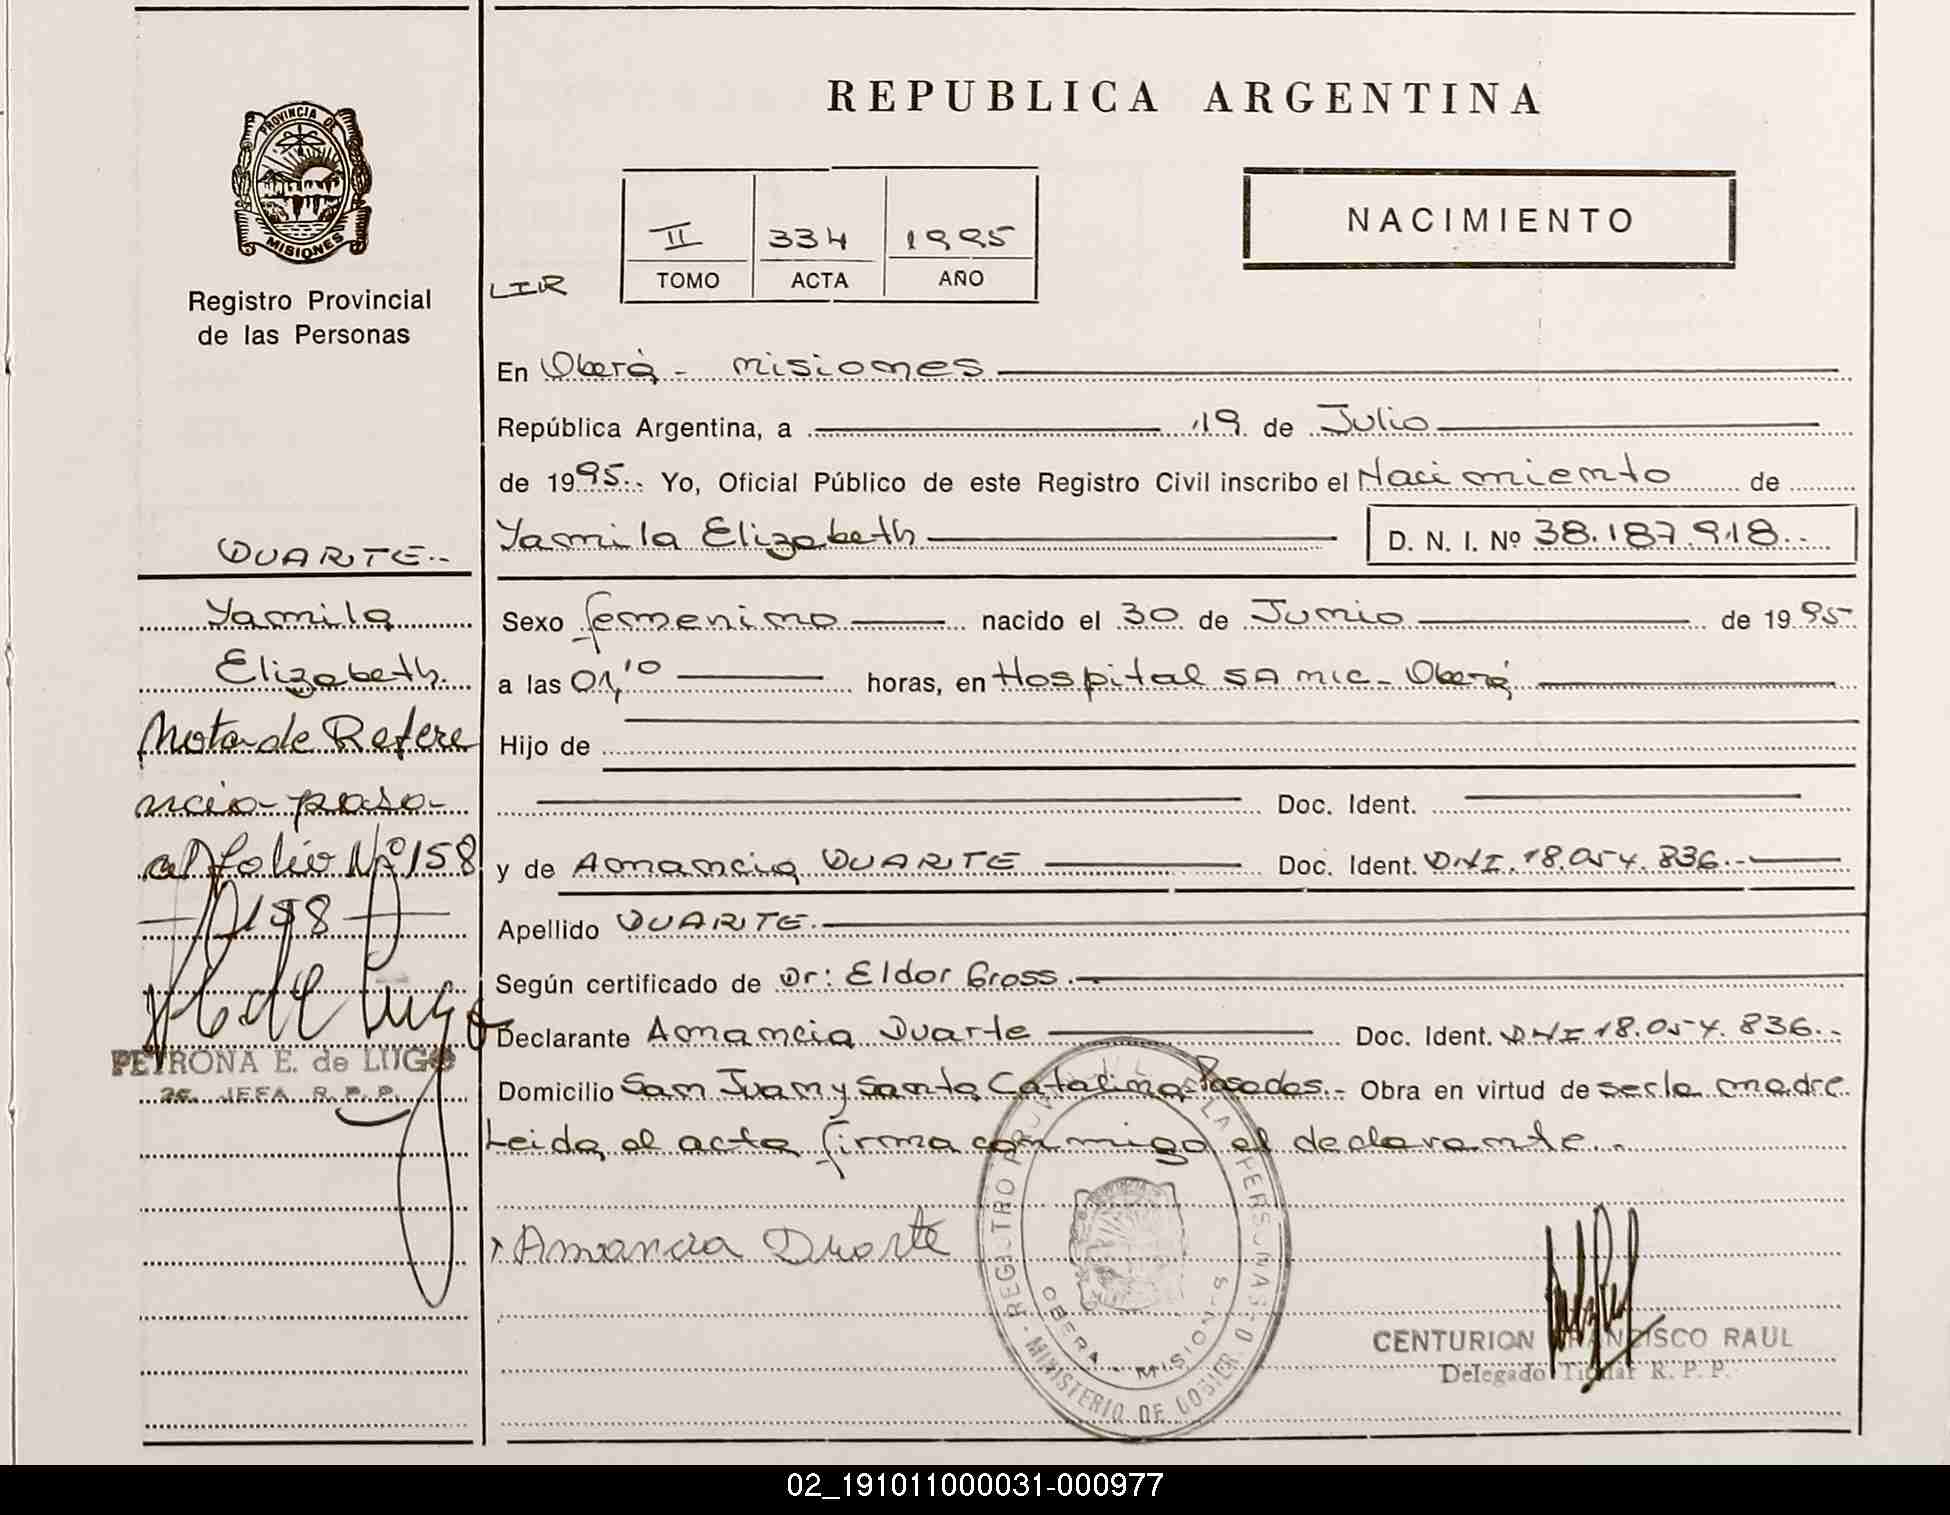 REPUBLICA ARGENTINA
PROVINCIA DE
MISIONES
Registro Provincial
de las Personas
II 334 1995
TOMO ACTA AÑO
NACIMIENTO
LIR
En Oberá - misiones
República Argentina, a 19 de Julio
de 1995.. Yo, Oficial Público de este Registro Civil inscribo el Nacimiento de
Yamila Elizabeth D. N. I. Nº 38.187.918..
Sexo femenino nacido el 30 de Junio de 1995
a las 01,10 horas, en Hospital SAMIC - Oberá
Hijo de
Doc. Ident.
y de Amancia DUARTE Doc. Ident. DNI. 18.054.836.-
Apellido DUARTE.
Según certificado de Dr: Eldor Gross.-
Declarante Amancia Duarte Doc. Ident. DNI 18.054.836..
Domicilio San Juan y Santa Catalina-Posadas.- Obra en virtud de ser la madre
Leida el acta firma conmigo el declarante..
Amancia Duarte
DUARTE..
Yamila
Elizabeth.
Nota de Refere
ncia- paso-
al folio Nº 158
158
PETRONA E. de LUGO
2ª. JEFA R. P. P.
REGISTRO PROVINCIAL DE LAS PERSONAS
MINISTERIO DE GOBIERNO
OBERA - MISIONES
CENTURION FRANCISCO RAUL
Delegado Titular R. P. P.
02_191011000031-000977